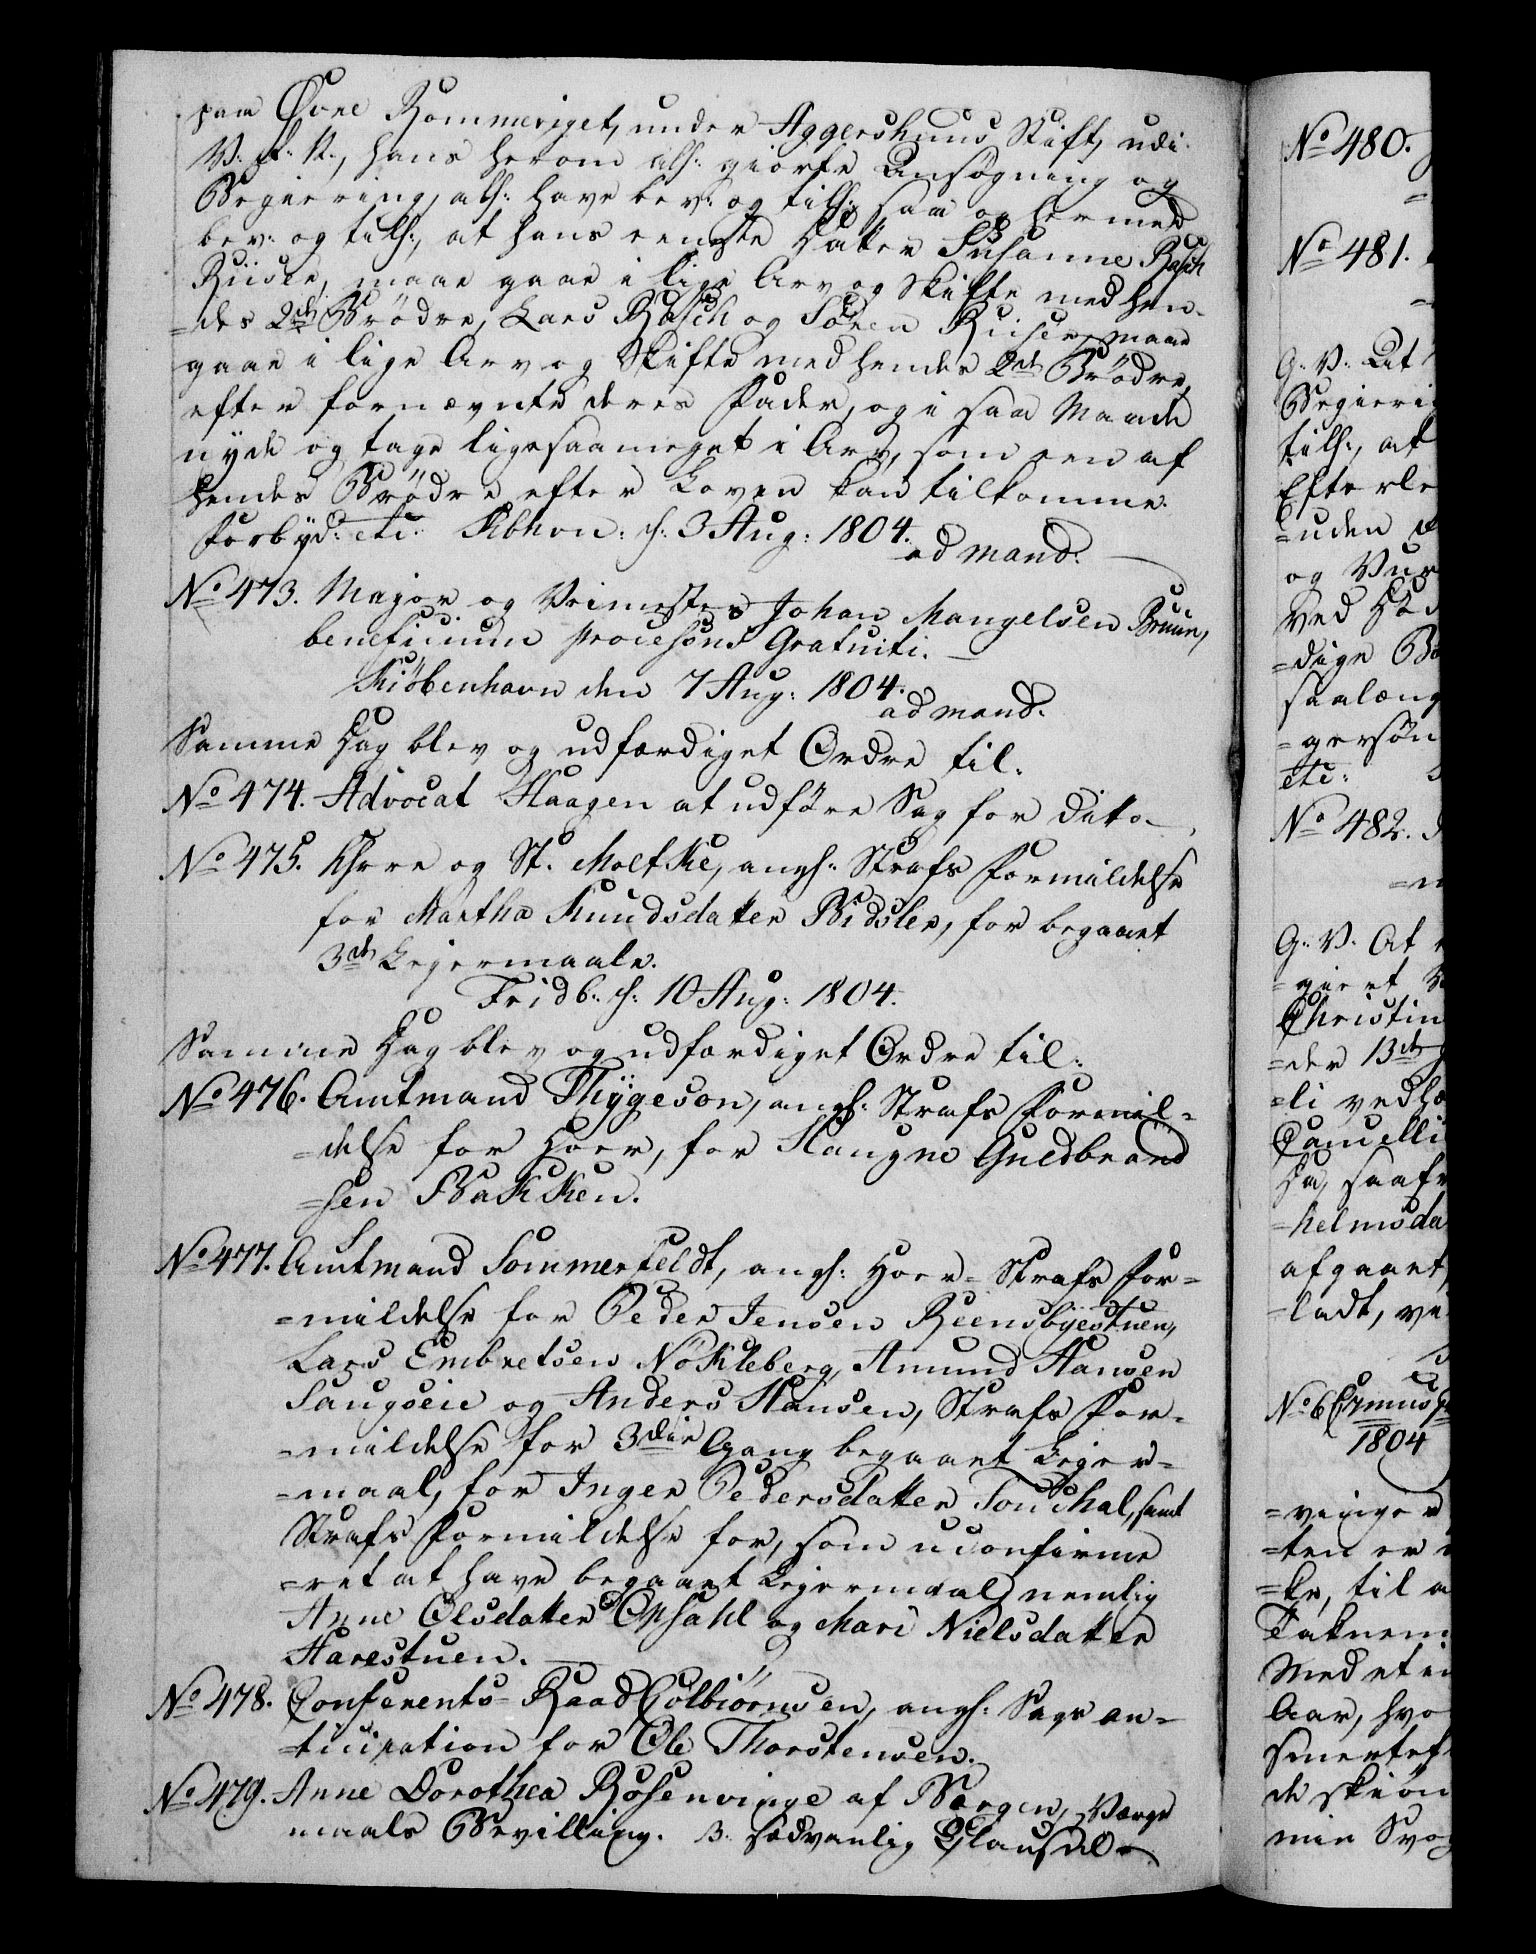 paa Øvre Rommeriget, under Aggershuus Stift, udi
V: R: N:, hans herom alh: giorte Ansøgning og
Begiering, alh: have bev: og tilh: saa og hermed
bev: og tilh:, at hans eeneste Datter Susanne Rasch
Riiser, maae gaae i lige Arv og Skifte med hen-
=des 2de Brødre, Lars Rasch og Søren Riiser, maae
gaae i lige Arv og Skifte med hendes 2de Brødre,
efter fornævnte deres Fader, og i saa Maade
nyde og tage ligesaameget i Arv, som een af
hendes Brødre efter Loven kan tilkomme.
Forbyd: etc: Kbhvn: d: 3 Aug: 1804.
ad mand:
No 473. Major og Veimester Johan Mangelsen Bruun,
beneficium processus Gratuiti.
Kiøbenhavn den 7 Aug: 1804.
ad mand:
Samme Dag blev og udfærdiget Ordre til:
No 474. Advocat Haagen at udføre Sag for dito.
No 475. Hrre og St. Moltke, angh: Strafs Formildelse
for Martha Knudsdatter Bidsler, for begaaet
3de Leiermaale.
Fridb: d: 10 Aug: 1804.
Samme Dag blev og udfærdiget Ordre til:
No 476. Amtmand Thygeson, angh: Strafs Formil=
=delse for Hoer, for Haugne Guldbrand
=sen Bakken.
No 477. Amtmand Sommerfeldt, angh: Hoer= Strafs For=
=mildelse for Peder Jensen Reensbyestuen,
Lars Embretsen Nökleberg, Amund Hansen
Saugseie og Anders Hansen, Strafs For=
=mildelse for 3die Gang begaaet Leier=
=maal, for Inger Pedersdatter Sondhal, samt
Strafs Formildelse for, som uconfirme
=ret at have begaaet Leiermaal, nemlig
Anne Olsdatter Opsahl og Mari Nielsdatter
Harestuen.
No 478. Conferents= Raad Colbiörnsen, angh: Sags an=
=ticipation for Ole Thorstensen.
No 479. Anne Dorothea Rosenvinge af Bergen, Værge
maals Bevilling. B: sædvanlig Clausul
No 480.
No 481.
G: V: At
Begieri
tilh:, at
Efterle
=uden
og Vur
ved Dö
=dige Bo
saalæng
=gersøn
etc:
No 482.
G: V: At
=gieret
Christin
=der 13de
=li vedhæ
Cancelli
Da, saafr
=helmsda
afgaaet,
=ladt, ve
No 6
1804
=vinger
=ten er
=ke, til a
Taknem
Med et in
Aar, hvo
smertef
de skiøn
min Svog